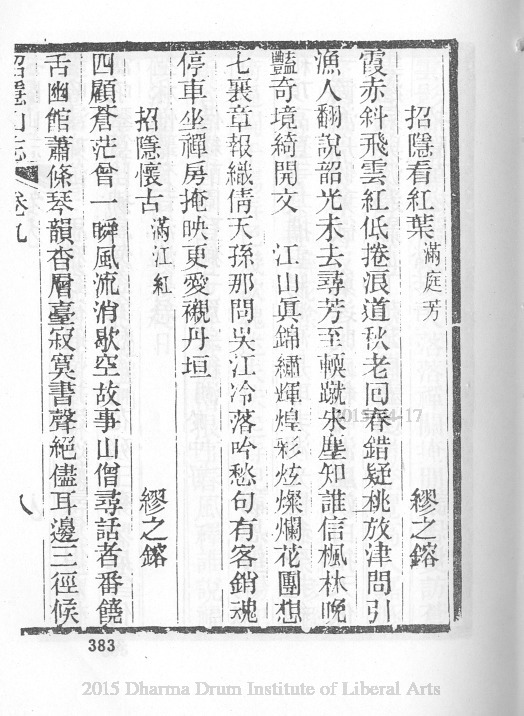 招隱看紅葉 滿庭芳 繆之鎔
霞赤斜飛雲紅低捲浪道秋老囘春錯疑桃放津問引
漁人翻說韶光未去尋芳至轅蹴朱塵知誰信楓林晚
豔奇境綺開文 江山眞錦繡輝煌彩炫燦爛花團想
七襄章報織倩天孫那問吳江冷落吟愁句有客銷魂
停車坐禪房掩映更愛襯丹垣
招隱懷古 滿江紅 繆之鎔
四顧蒼茫曾一瞬風流消歇空故事山僧尋話者番饒
舌幽館蕭條琴韻杳層臺寂寞書聲絕儘耳邊三徑候
招隱山志 卷九 八
383
2015-04-17
2015 Dharma Drum Institute of Liberal Arts